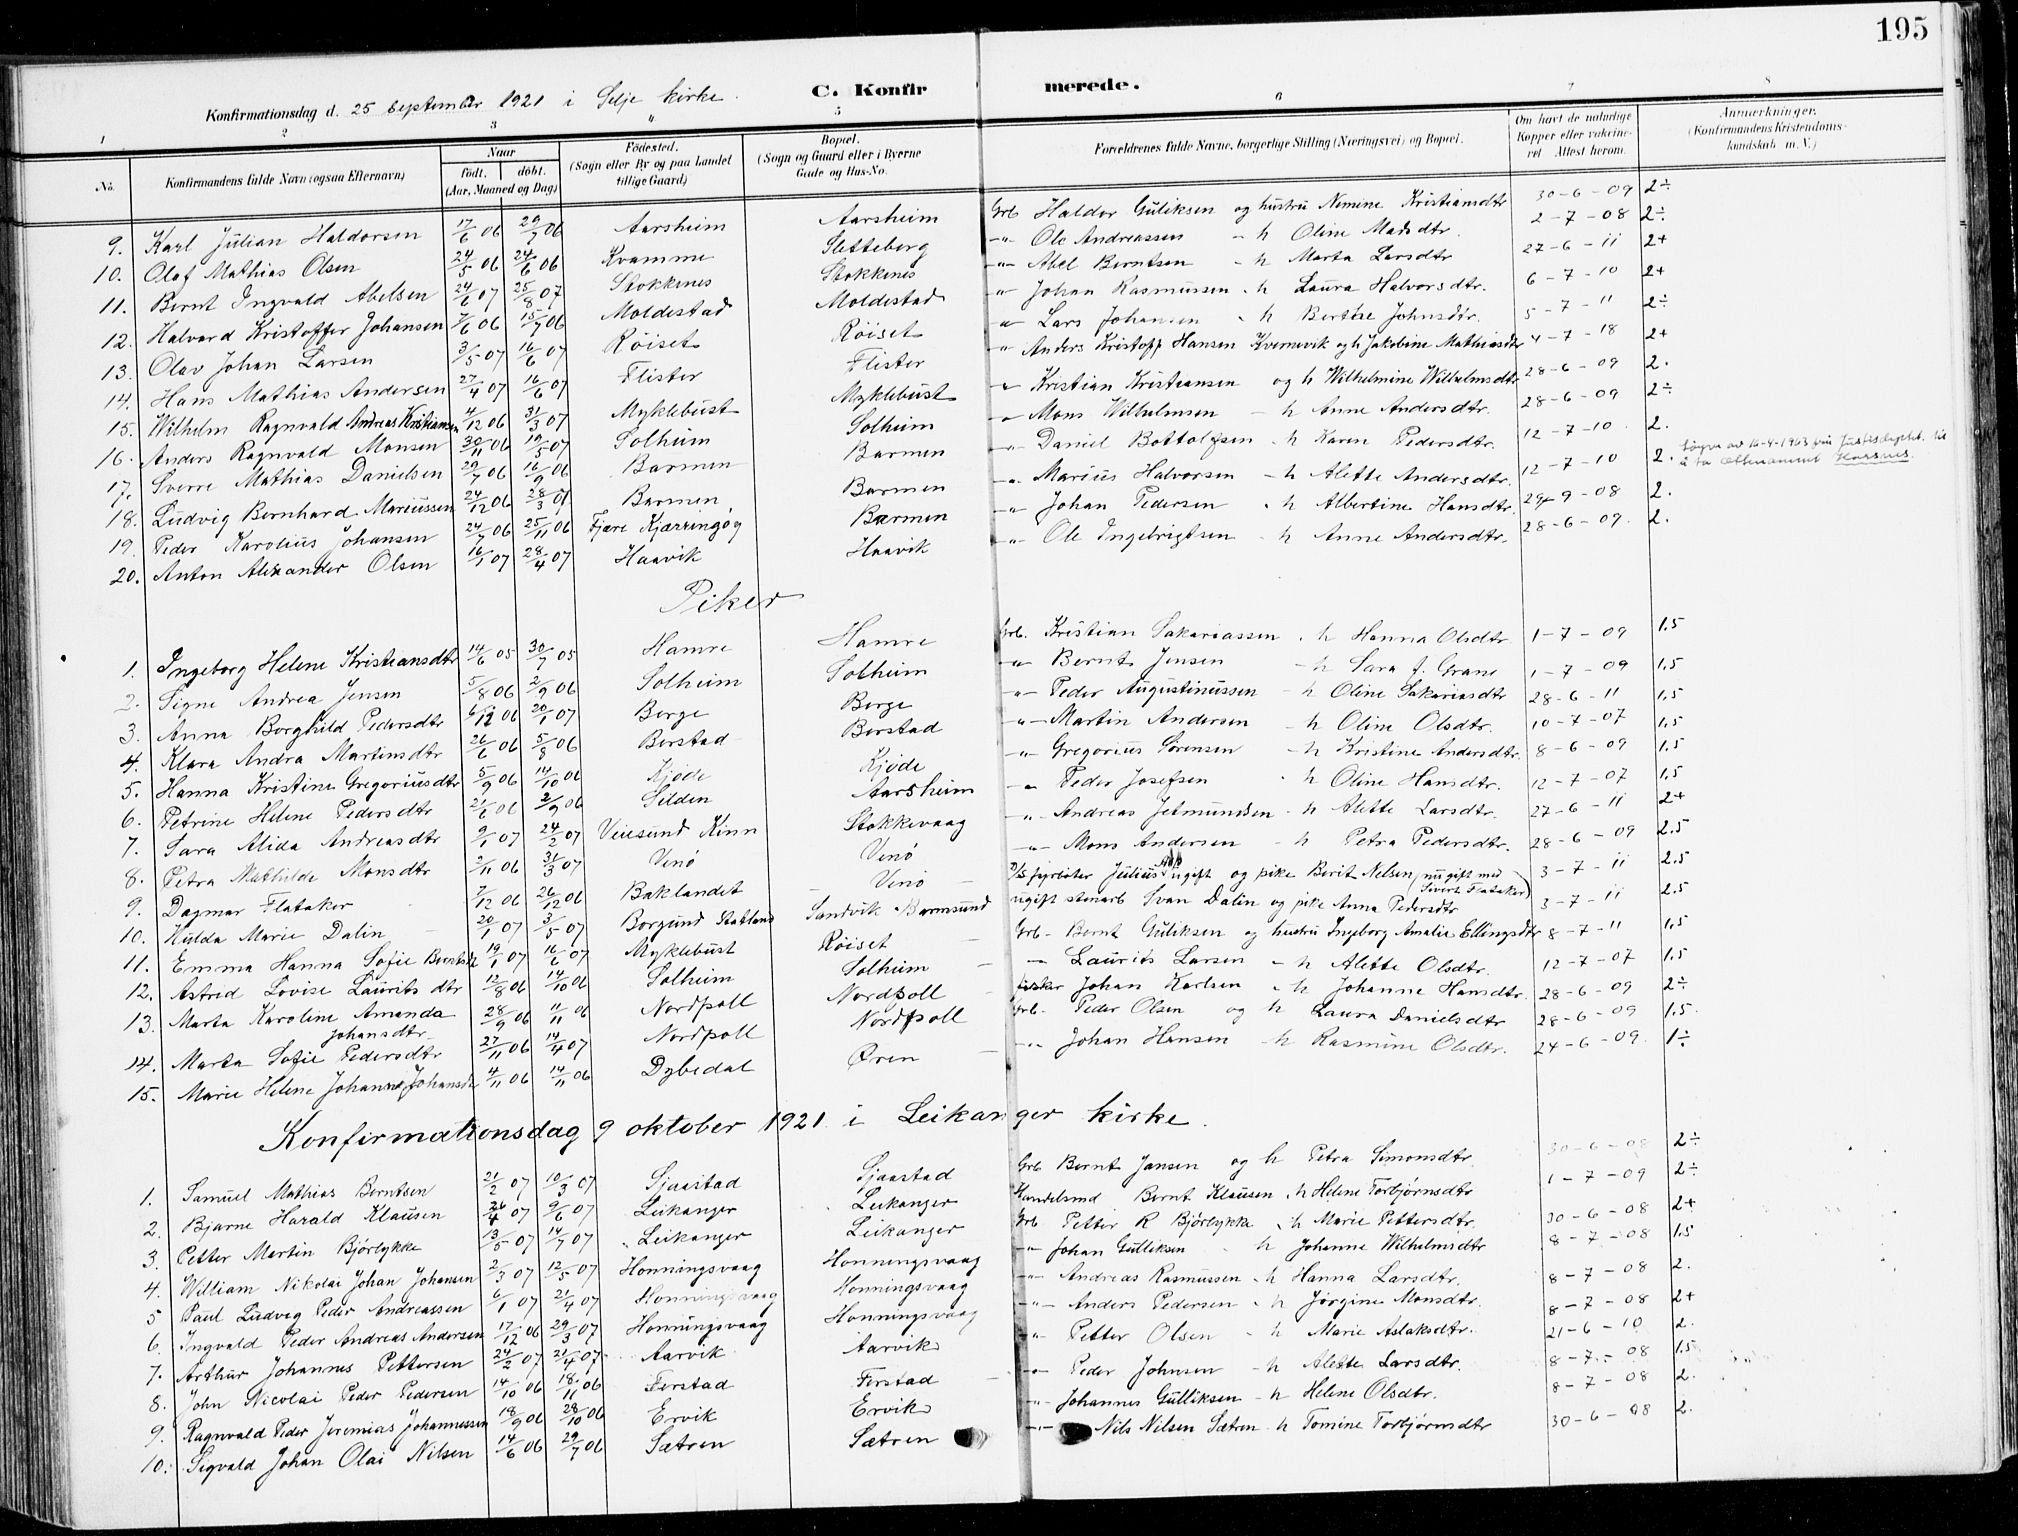 195
C. Konfirmerede.
Konfirmationsdag d. 25 September 1921 i Selje kirke.
1 2 3 4 5 6 7 8
No. Konfirmandens fulde Navn (ogsaa Efternavn) Naar født. døbt. (Aar, Maaned og Dag) Fødested. (Sogn eller By og paa Landet tillige Gaard) Bopæl. (Sogn og Gaard eller i Byerne Gade og Hus-No. Forældrenes fulde Navne, borgerlige Stilling (Næringsvei) og Bopæl. Om havt de naturlige Kopper eller vaccineret Attest herom. Anmærkninger. (Konfirmandens Kristendomskundskab m. V.)
9. Karl Julian Haldorsen 17/6 06 29/7 06 Aarsheim Aarsheim Grb Haldor Guliksen og hustru Nemine Kristiansdtr 30-6-09 2÷
10. Olaf Mathias Olsen 24/5 06 24/6 06 Kvamme Sletteberg -"- Ole Andreassen - h Oline Madsdtr. 2-7-08 2÷
11. Bernt Ingvald Abelsen 24/6 07 25/8 07 Stokkenes Stokkenes -"- Abel Berntsen - h Marta Larsdtr 27-6-11 2+
12. Halvard Kristoffer Johansen 7/6 06 15/7 06 Moldestad Moldestad " Johan Rasmussen - h Laura Halvorsdtr. 6-7-10 2+
13. Olav Johan Larsen 3/5 07 16/6 07 Røiset Røiset -"- Lars Johansen - h Berthe Johnsdtr. 5-7-11 2÷
14. Hans Mathias Andersen 27/4 07 16/6 07 Flister Flister " Anders Kristoff Hansen Kvernevik og h Jakobine Mathiasdtr 4-7-18 2+
15. Wilhelm Ragnvald Andreas Kristiansen 4/12 06 31/3 07 Myklebust Myklebust -"- Kristian Kristiansen og h Wilhelmine Wilhelmsdtr 28-6-09 2.
16. Anders Ragnvald Monsen 30/11 06 19/5 07 Solheim Solheim -"- Mons Wilhelmsen - h Anne Andersdtr. 28-6-09 2÷
17. Sverre Mathias Danielsen 29/7 06 16/9 06 Barmen Barmen -"- Daniel Bottolfsen - h Karen Pedersdtr. 12-7-10. 2.
18. Ludvig Bernhard Mariussen 24/12 06 28/3 07 Barmen Barmen -"- Marius Halvorsen - h Alette Andersdtr. 12-7-10 2. av 16-4-1963 fra Justisdeptet. til å ta etternamnet Korsnes.
19. Peder Karolius Johansen 24/7 06 25/11 06 Fjære Kjærringøy Barmen -"- Johan Pedersen - h Albertine Hansdtr. 29-9-08 2.
20. Anton Alexander Olsen 16/1 07 28/4 07 Haavik Haavik -"- Ole Ingebrigtsen - h Anne Andersdtr. 28-6-09. 2.
Piker
1. Ingeborg Helene Kristiansdtr 14/6 05 30/7 05 Hamre Hamre Grb. Kristian Sakariassen - h Hanna Olsdtr 1-7-09 1.5
2. Signe Andrea Jensen 5/8 06 2/9 06 Solheim Solheim -"- Bernt Jensen - h Sara f. Grane 1-7-09 1.5
3. Anna Borghild Pedersdtr 6/12 06 20/1 07 Berge Berge -"- Peder Augustinussen - h Oline Sakariasdtr 28-6-11 1.5
4. Klara Andra Martinsdtr 26/6 06 5/8 06 Berstad Berstad -"- Martin Andersen - h Oline Olsdtr. 10-7-07 1.5
5. Hanna Kristine Gregoriusdtr 5/9 06 14/10 06 Kjøde Kjøde -"- Gregorius Sørensen - h Kristine Andersdtr. 8-6-09 1.5
6. Petrine Helene Pedersdtr 21/6 06 2/9 06 Silden Aarsheim -"- Peder Josefsen - h Oline Hansdtr. 12-7-07 1.5
7. Sara Alida Andreasdtr 9/1 07 24/2 07 Veiesund Kinn Stokkevaag -"- Andreas Jetmundsen - h Alette Larsdtr. 27-6-11 2+
8. Petra Mathilde Monsdtr 2/11 06 31/3 07 Venø Venø -"- Mons Andersen - h Petra Pedersdtr. 28-6-09 2.5
9. Dagmar Flataker 7/12 06 26/12 06 Baklandet Venø - D/S fyrbøter Julius ugift og pike Berit Nelsen (nu gift med Sivert Flataker) 3-7-11 2.5
10. Hulda Marie Dalin 20/1 07 3/5 07 Borgund Statland Sandvik Barmsund ugift stenarb Svan Dalin og pike Anna Pedersdtr 3-7-11 2.5
11. Emma Hanna Sofie Berntsdtr 19/1 07 16/6 07 Myklebust Røiset - Grb - Bernt Guliksen og hustru Ingeborg Amalie Ellingsdtr 8-7-11 1.5
12. Astred Lovise Lauritsdtr 12/8 06 14/10 06 Solheim Solheim - -"- Laurits Larsen - h Alette Olsdtr. 12-7-07 1.5
13. Marta Karoline Amanda Johansdtr 28/9 06 11/11 06 Nordpoll Nordpoll fisker Johan Karlsen - h Johanne Hansdtr. 28-6-09 2÷
14. Marta Sofie Pedersdtr 27/11 06 14/4 07 Nordpoll Nordpoll Grb. Peder Olsen og h Laura Danielsdtr 28-6-09 1.5.
15. Marie Helene Johanne Johansdtr 4/11 06 14/11 06 Dybedal Øren - -"- Johan Hansen - h Rasmine Olsdtr. 24-6-09. 1÷
Konfirmationsdag 9 oktober 1921 i Leikanger kirke.
1. Samuel Mathias Berntsen 21/2 07 10/3 07 Sjaastad Sjaastad Grb Bernt Jansen og h Petra Simonsdtr. 30-6-08 2÷
2. Bjarne Harald Klausen 26/4 07 9/6 07 Leikanger Leikanger Handelsmd Bernt Klausen - h Helene Torbjørnsdtr 1-7-09 2÷
3. Petter Martin Bjørlykke 13/5 07 14/7 07 Leikanger Leikanger Grb Petter R Bjørlykke - h Marie Pettersdtr. 30-6-08 2+
4. William Nikolai Johan Johansen 2/3 07 12/5 07 Honningsvaag Honningsvaag -"- Johan Gulliksen - h Johanne Wilhelmsdtr 8-7-08 1.5
5 Paul Ludvig Peder Andreassen 6/1 07 21/4 07 Honningsvaag Honningsvaag -"- Andreas Rasmussen - h Hanna Larsdtr. 8-7-08 2.
6. Ingvald Peder Andreas Andersen 17/12 06 29/3 07 Honningsvaag Honningsvaag -"- Anders Pedersen - h Jørgine Monsdtr. 8-7-08 2+
7. Arthur Johannes Pettersen 24/2 07 21/4 07 Aarvik Aarvik -"- Petter Olsen - h Marie Aslaksdtr. 21-6-10 2.
8. John Nicolai Peder Pedersen 14/10 06 18/11 06 Ferstad Ferstad - -"- Peder Johnsen - h Alette Larsdtr. 8-7-08 1.5
9. Ragnvald Peder Jeremias Johannessen 18/9 06 28/10 06 Ervik Ervik -"- Johannes Gulliksen - h Helene Olsdtr. 8-7-08 2.
10. Sigvald Johan Olai Nilsen 14/6 06 29/7 06 Sætren Sætren -"- Nils Nilsen Sætren - h Tomine Torbjørnsdtr 30-6-08 2.